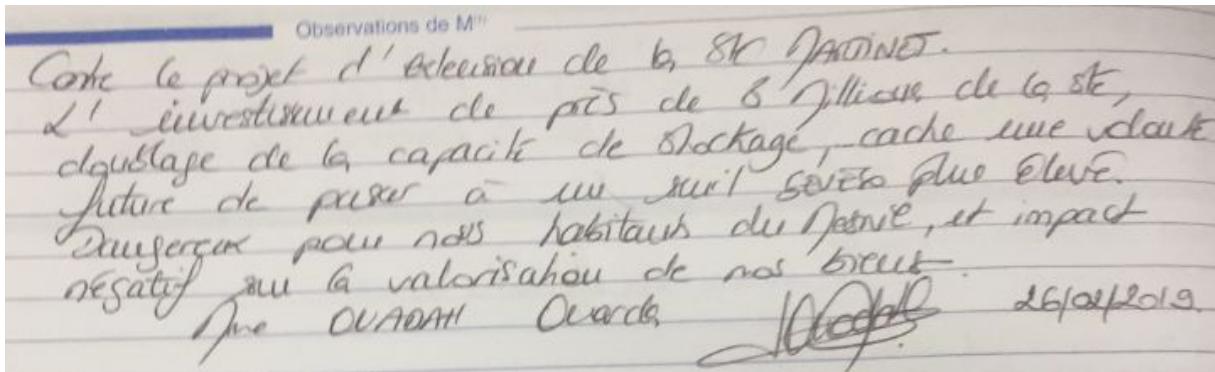 Observations de M(r)
Contre le projet d'extension de la Sté MARTINET.
L'investissement de près de 8 Millions de la sté,
doublage de la capacité de stockage, cache une volonté
future de passer à un seuil seveso plus élevé.
Dangereux pour nous habitants du Mesnil, et impact
négatif sur la valorisation de nos biens.
Mme OUADAH Ouarda 26/02/2019